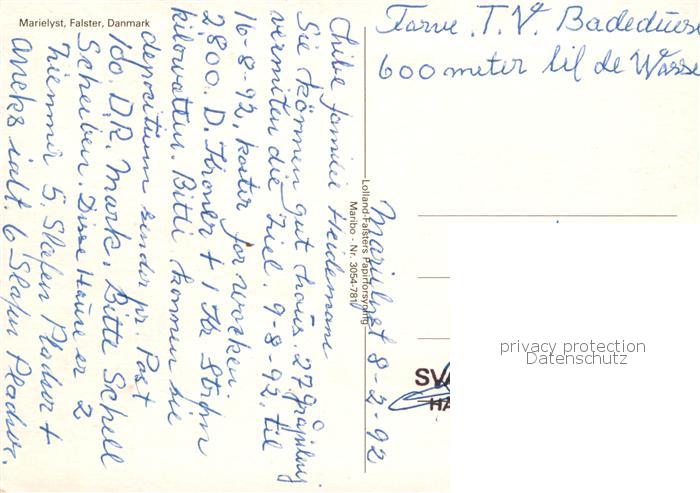 Marielyst, Falster, Danmark
Marielyst 8-2-92
Liebe familie Heidemann
Sie können gut haus. 27
vermiten die ziel. 9-8-92 til
16-8-92, koster for wochen.
2,800. D. Kroner + 1 Kr Strøm
kilowatten. Bitte kommen sie
depositium sender pr. Post
100. D.R. Mark, Bitte Schell
Scheiben. Disse Häuse er 2
Ziemmer 5. Slafen Pladser +
anneks ialt 6 Slafen Pladser.
Farve. T.V. Badeduse
600 meter til de Wasse
Lolland-Falsters Papirforsyning
Maribo - Nr. 3054-781
SV
HA
privacy protection
Datenschutz